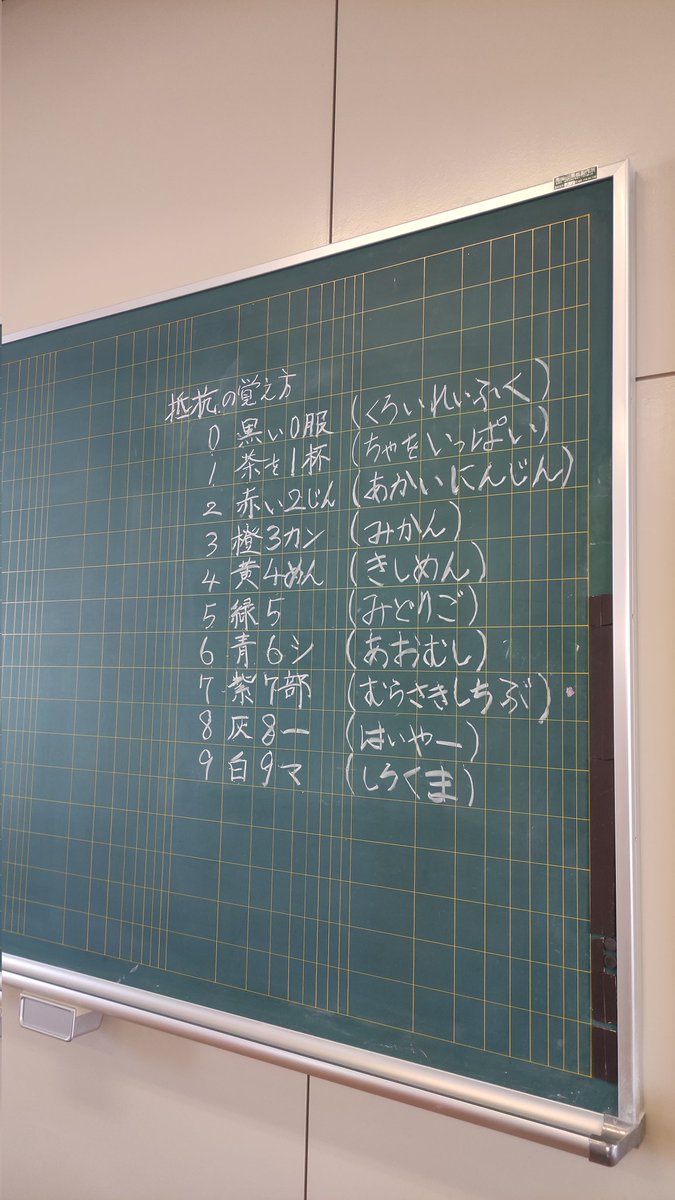 抵抗の覚え方
0 黒い0服 (くろいれいふく)
1 茶を1杯 (ちゃをいっぱい)
2 赤い2じん (あかいにんじん)
3 橙3カン (みかん)
4 黄4めん (きしめん)
5 緑5 (みどりご)
6 青6シ (あおむし)
7 紫7部 (むらさきしちぶ)
8 灰8ー (はいやー)
9 白9マ (しろくま)